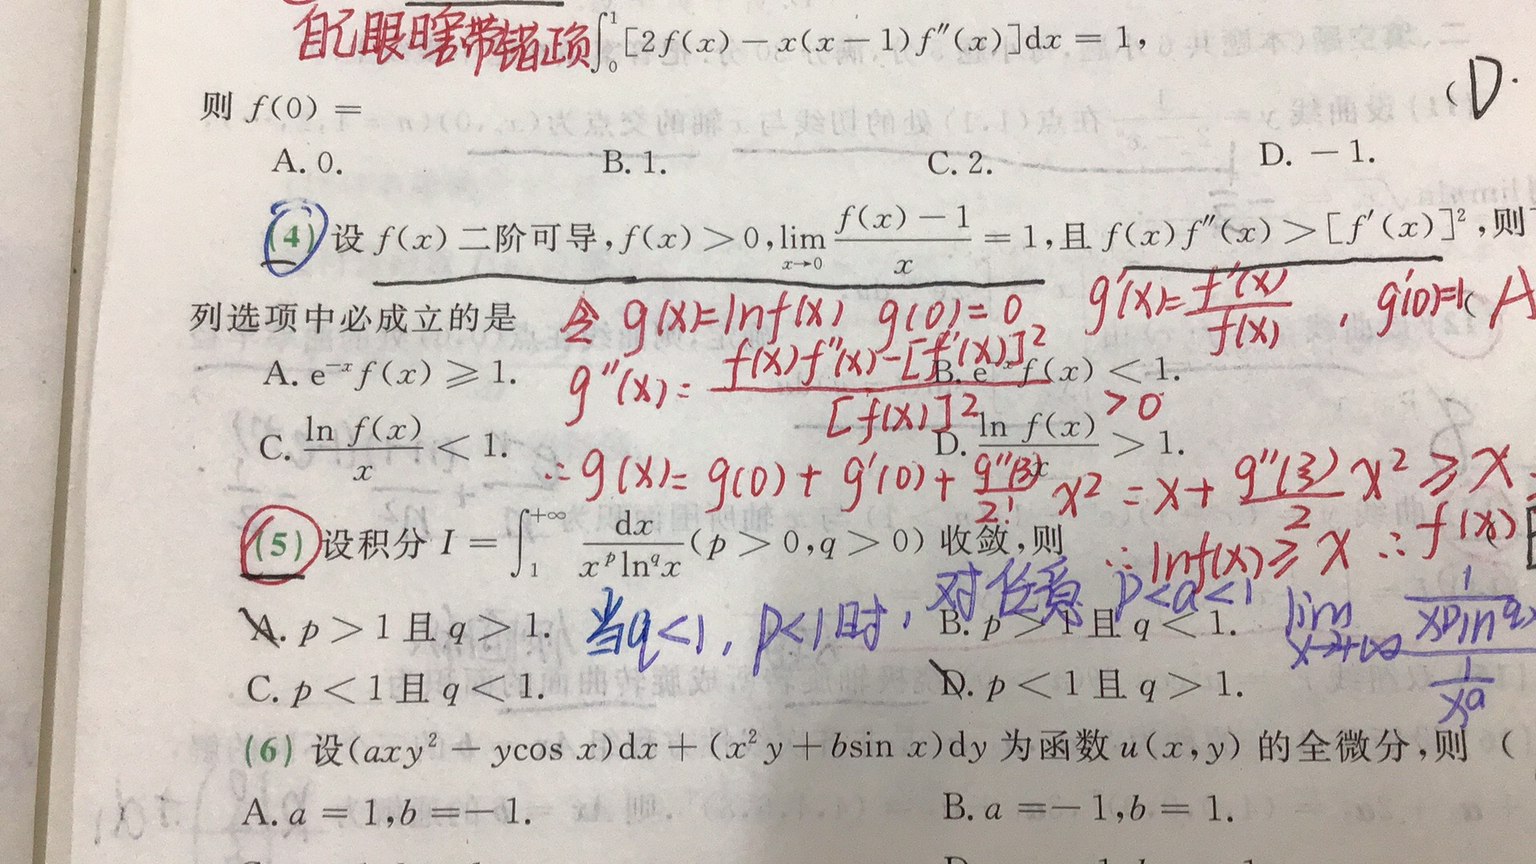 自己眼瞎带错项 ∫₀¹[2f(x)－x(x－1)f″(x)]dx＝1,
则 f(0)＝ ( D.
A. 0. B. 1. C. 2. D. －1.
(4) 设 f(x) 二阶可导, f(x)＞0, lim x→0 (f(x)－1)/x ＝1, 且 f(x)f″(x)＞[f′(x)]², 则
列选项中必成立的是 ( A
令 g(x)=lnf(x) g(0)=0 g′(x)=f′(x)/f(x), g′(0)=1
A. e⁻ˣf(x)⩾1. B. e⁻ˣf(x)＜1.
g″(x)= (f(x)f″(x)-[f′(x)]²)/[f(x)]² >0
C. ln f(x)/x ＜1. D. ln f(x)/x ＞1.
∴ g(x)= g(0)+g′(0)+ g″(ξ)/2! x² = x+ g″(ξ)/2 x² ⩾ x
∴ lnf(x)⩾x ∴ f(x)
(5) 设积分 I＝∫₁⁺∞ dx/(xᵖlnᑫx) (p＞0,q＞0) 收敛,则 (
A. p＞1且q＞1. B. p＞1且q＜1.
当q<1, p<1时, 对任意 p<a<1 lim x→+∞
C. p＜1且q＜1. D. p＜1且q＞1.
(6) 设(axy²＋ycos x)dx＋(x²y＋bsin x)dy 为函数 u(x,y) 的全微分,则 (
A. a＝1,b＝－1. B. a＝－1,b＝1.